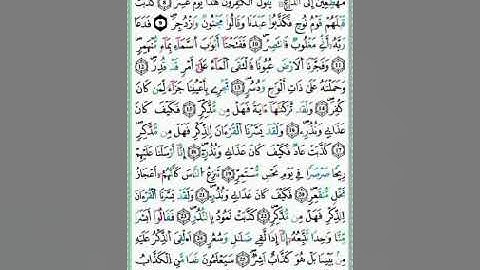 مُّهْطِعِينَ إِلَى ٱلدَّاعِ ۖ يَقُولُ ٱلْكَٰفِرُونَ هَٰذَا يَوْمٌ عَسِرٌ ٨ كَذَّبَتْ
قَبْلَهُمْ قَوْمُ نُوحٍ فَكَذَّبُوا۟ عَبْدَنَا وَقَالُوا۟ مَجْنُونٌ وَٱزْدُجِرَ ٩ فَدَعَا
رَبَّهُۥٓ أَنِّى مَغْلُوبٌ فَٱنتَصِرْ ١٠ فَفَتَحْنَآ أَبْوَٰبَ ٱلسَّمَآءِ بِمَآءٍ مُّنْهَمِرٍ
١١ وَفَجَّرْنَا ٱلْأَرْضَ عُيُونًا فَٱلْتَقَى ٱلْمَآءُ عَلَىٰٓ أَمْرٍ قَدْ قُدِرَ ١٢
وَحَمَلْنَٰهُ عَلَىٰ ذَاتِ أَلْوَٰحٍ وَدُسُرٍ ١٣ تَجْرِى بِأَعْيُنِنَا جَزَآءً لِّمَن كَانَ
كُفِرَ ١٤ وَلَقَد تَّرَكْنَٰهَآ ءَايَةً فَهَلْ مِن مُّدَّكِرٍ ١٥ فَكَيْفَ كَانَ
عَذَابِى وَنُذُرِ ١٦ وَلَقَدْ يَسَّرْنَا ٱلْقُرْءَانَ لِلذِّكْرِ فَهَلْ مِن مُّدَّكِرٍ
١٧ كَذَّبَتْ عَادٌ فَكَيْفَ كَانَ عَذَابِى وَنُذُرِ ١٨ إِنَّآ أَرْسَلْنَا عَلَيْهِمْ
رِيحًا صَرْصَرًا فِى يَوْمِ نَحْسٍ مُّسْتَمِرٍّ ١٩ تَنزِعُ ٱلنَّاسَ كَأَنَّهُمْ أَعْجَازُ
نَخْلٍ مُّنقَعِرٍ ٢٠ فَكَيْفَ كَانَ عَذَابِى وَنُذُرِ ٢١ وَلَقَدْ يَسَّرْنَا ٱلْقُرْءَانَ
لِلذِّكْرِ فَهَلْ مِن مُّدَّكِرٍ ٢٢ كَذَّبَتْ ثَمُودُ بِٱلنُّذُرِ ٢٣ فَقَالُوٓا۟ أَبَشَرًا
مِّنَّا وَٰحِدًا نَّتَّبِعُهُۥٓ إِنَّآ إِذًا لَّفِى ضَلَٰلٍ وَسُعُرٍ ٢٤ أَءُلْقِىَ ٱلذِّكْرُ عَلَيْهِ
مِنۢ بَيْنِنَا بَلْ هُوَ كَذَّابٌ أَشِرٌ ٢٥ سَيَعْلَمُونَ غَدًا مَّنِ ٱلْكَذَّابُ